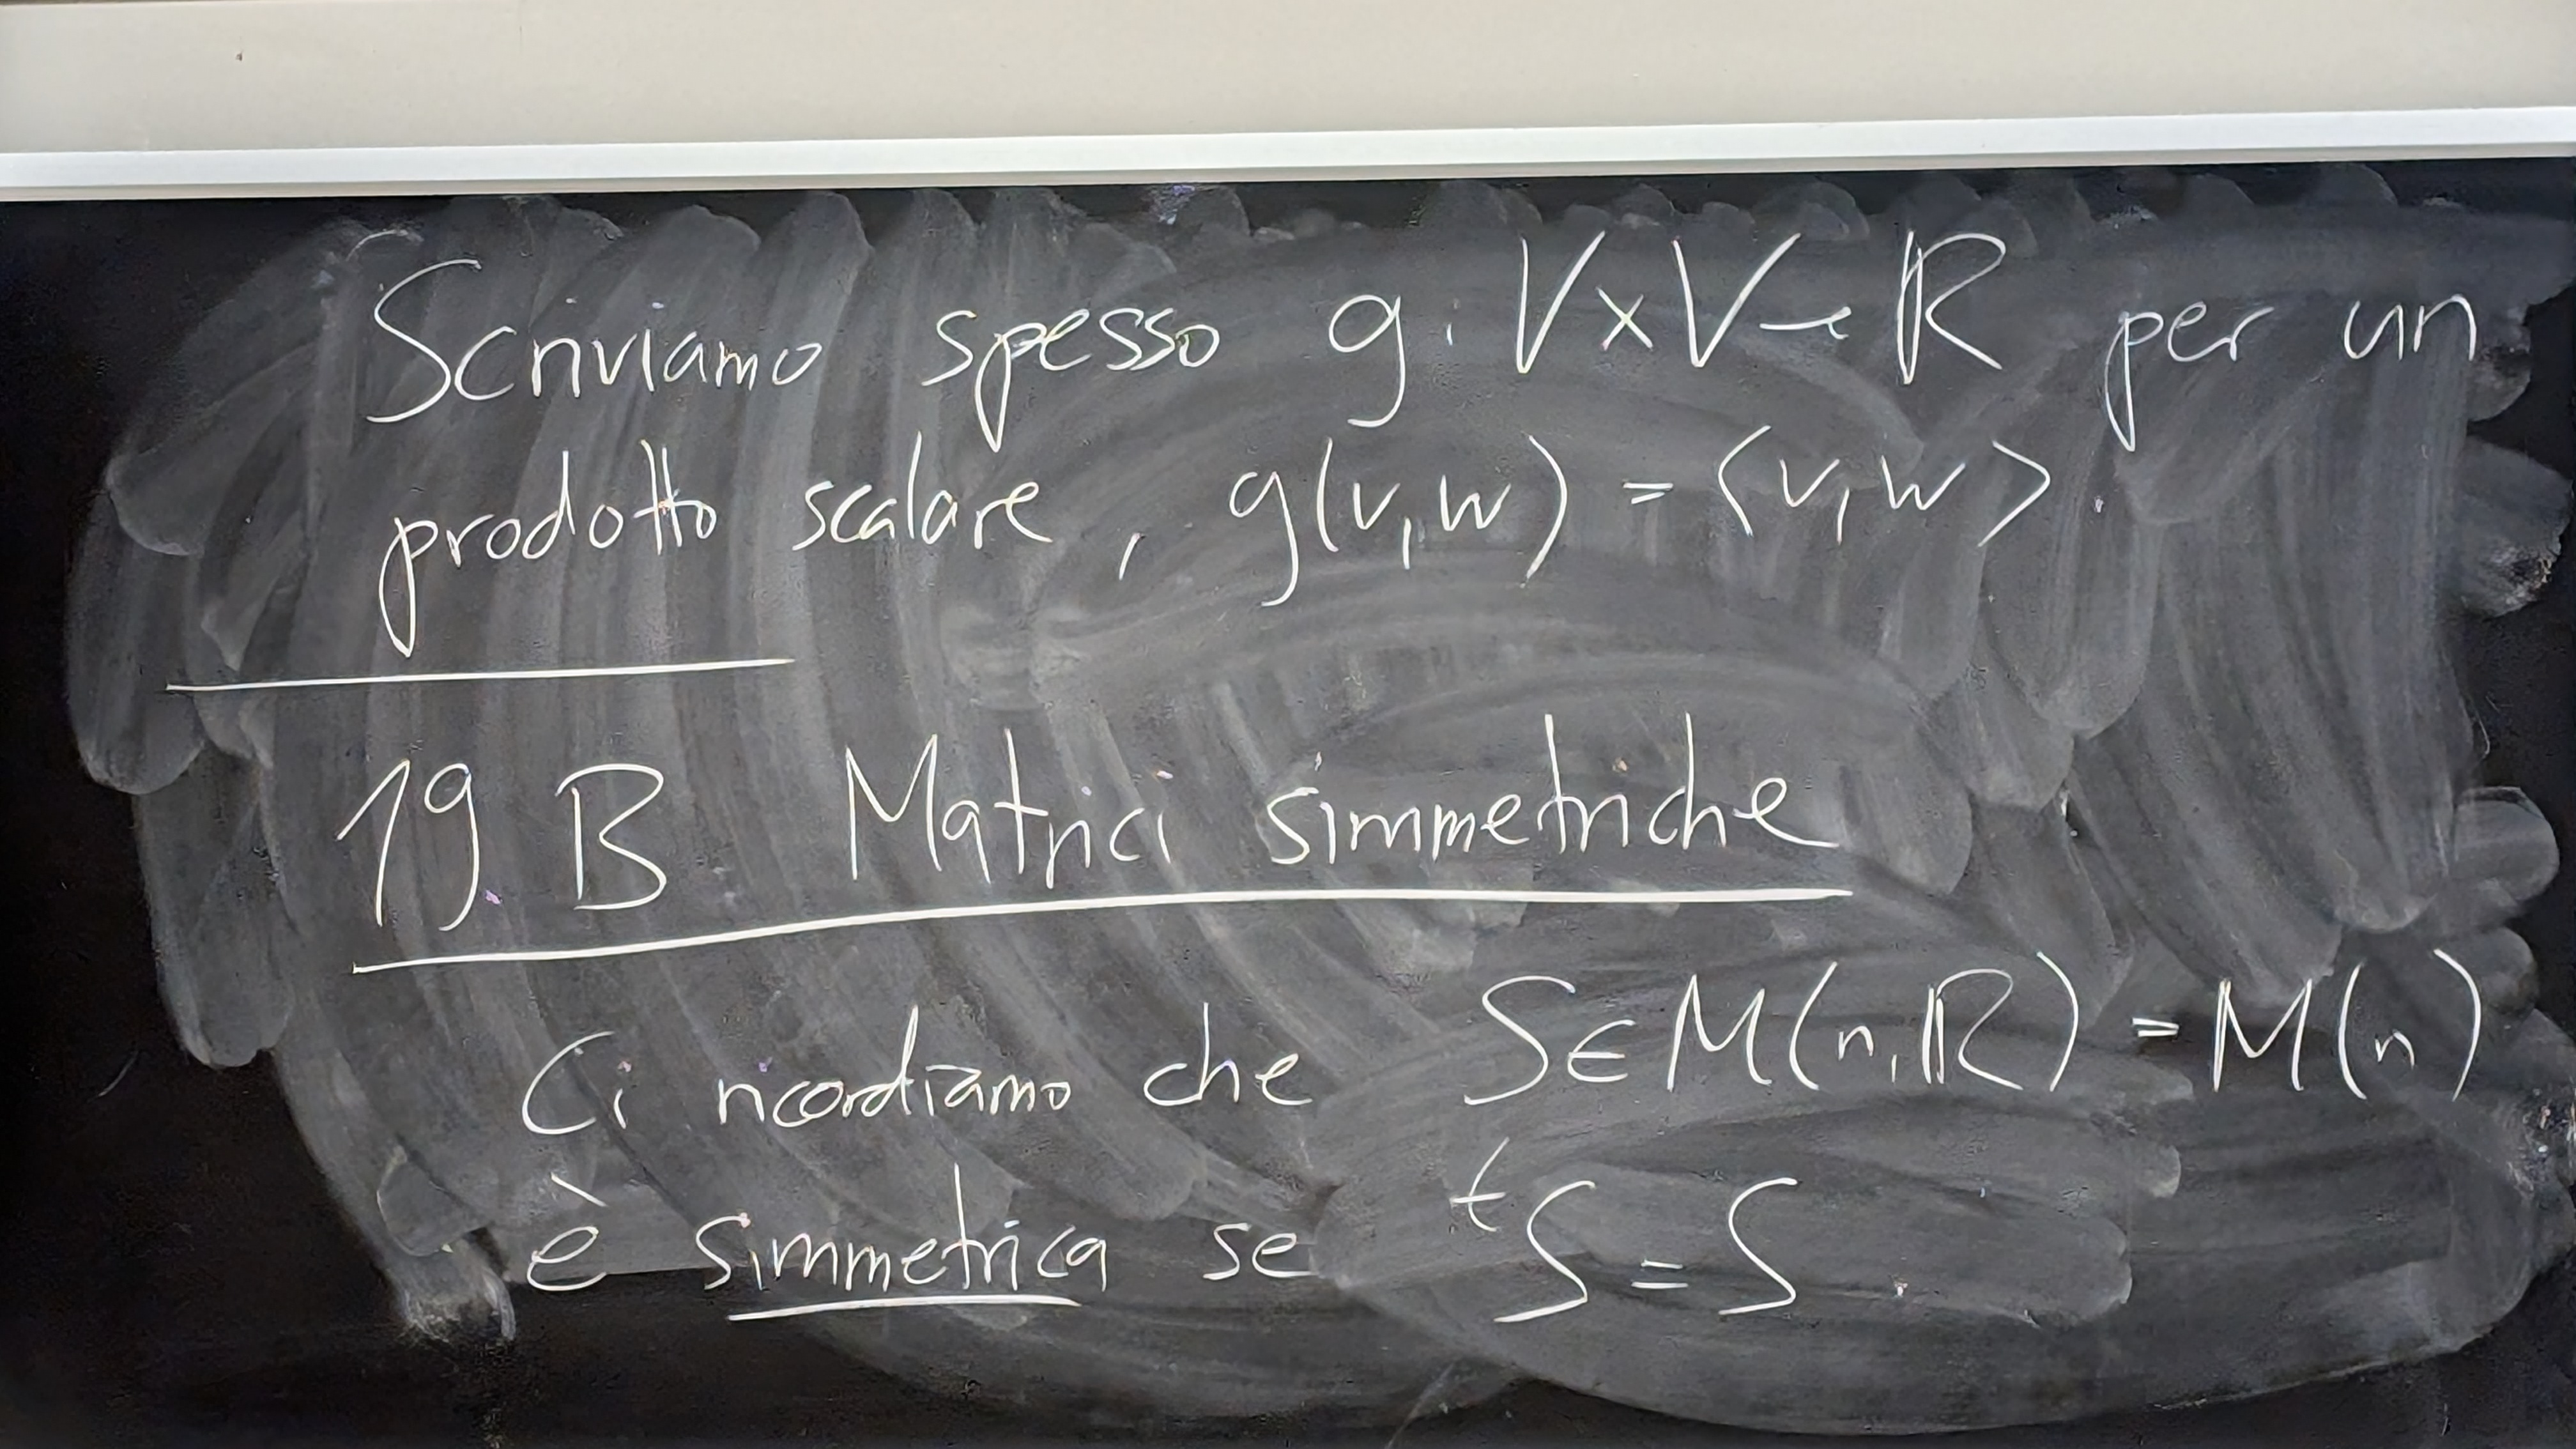 Scriviamo spesso g: V×V→ℝ per un
prodotto scalare, g(v,w) = ⟨v,w⟩.
19.B Matrici simmetriche
Ci ricordiamo che S∈M(n,ℝ) = M(n)
è simmetrica se ᵗS = S.